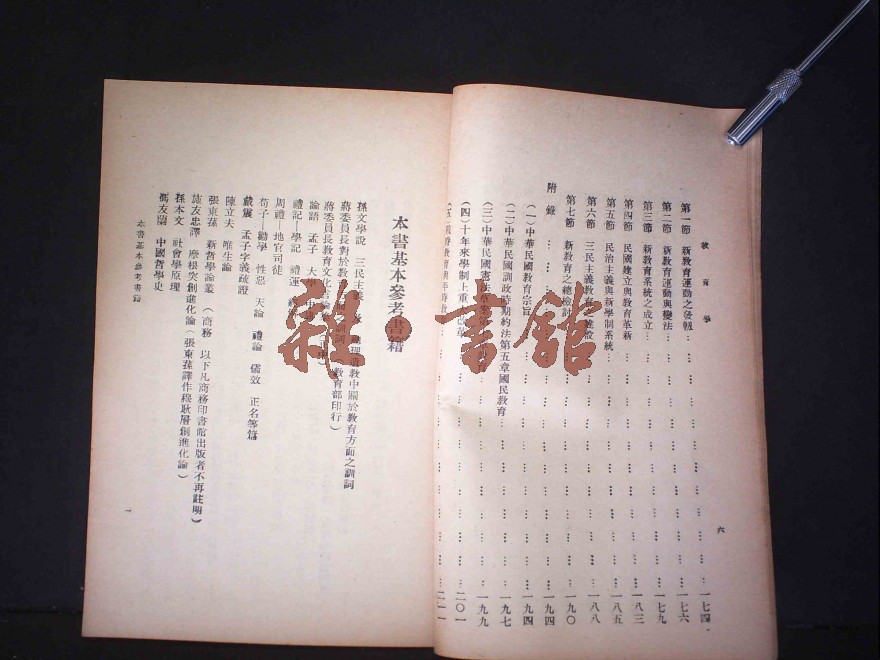 教育學
六
第一節 新教育運動之發軔 一七四
第二節 新教育運動與變法 一七六
第三節 新教育系統之成立 一七九
第四節 民國建立與教育革新 一八三
第五節 民治主義與新學制系統 一八五
第六節 三民主義教育之建設 一八八
第七節 新教育之總檢討 一九〇
附錄 一九四
(一)中華民國教育宗旨 一九四
(二)中華民國訓政時期約法第五章國民教育 一九七
(三)中華民國憲法草案 一九九
(四)十年來學制上重 二〇一
本書基本參考書籍
孫文學說 三民主義
總理遺教中關於教育方面之訓詞
蔣委員長對於教 訓詞(教育部印行)
蔣委員長教育文化言論
論語 孟子 大學
禮記—學記 禮運
周禮 地官司徒
荀子—勸學 性惡 天論 禮論 儒效 正名等篇
戴震 孟子字義疏證
陳立夫 唯生論
張東蓀 新哲學論叢(商務 以下凡商務印書館出版者不再註明)
施友忠譯 摩根突創進化論(張東蓀譯作層創進化論)
孫本文 社會學原理
馮友蘭 中國哲學史
本書基本參考書籍
一
雜·書館